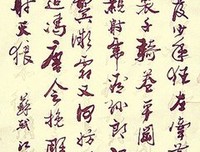 發少年狂左牽黃
裘千騎卷平岡
親射虎看孫郎
鬢微霜又何妨
遣馮唐會挽雕
射天狼 蘇軾江